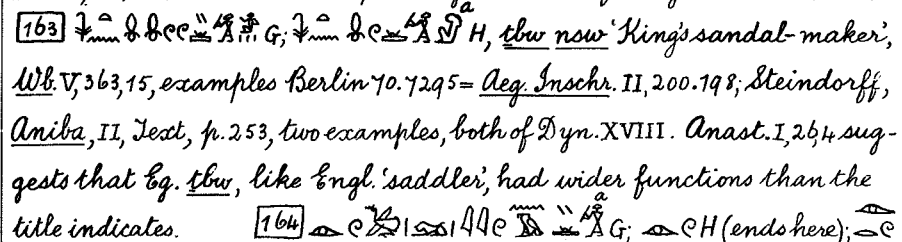 163 G; a H, tbw nsw 'King's sandal-maker',
Wb. V, 363, 15, examples Berlin 70.7295 = Aeg. Inschr. II, 200.198; Steindorff,
Aniba, II, Text, p. 253, two examples, both of Dyn. XVIII. Anast. I, 26,4 sug-
gests that Eg. tbw, like Engl. 'saddler', had wider functions than the
title indicates. 164 a G; H (ends here);